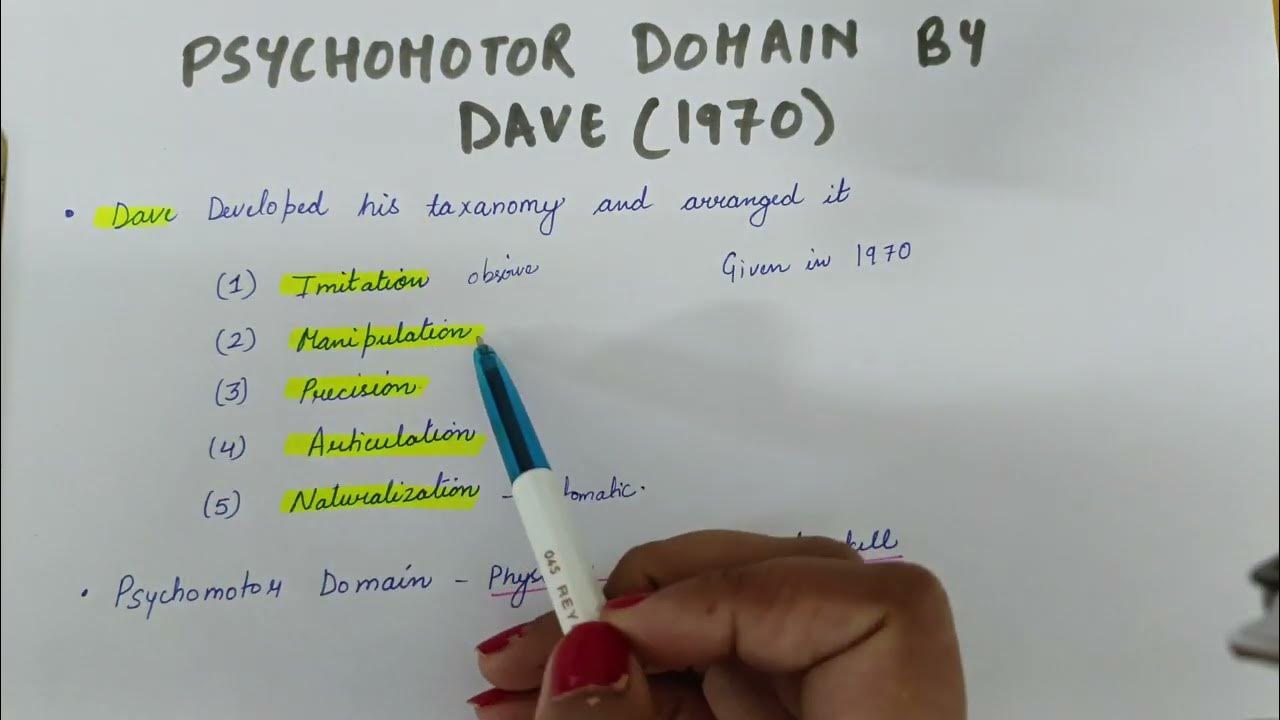 PSYCHOMOTOR DOMAIN BY
DAVE (1970)
• Dave Developed his taxanomy and arranged it
(1) Imitation obsive
Given in 1970
(2) Manipulation
(3) Precision
(4) Articulation
(5) Naturalization - tomatic.
• Psychomotor Domain - Phys
045 REY